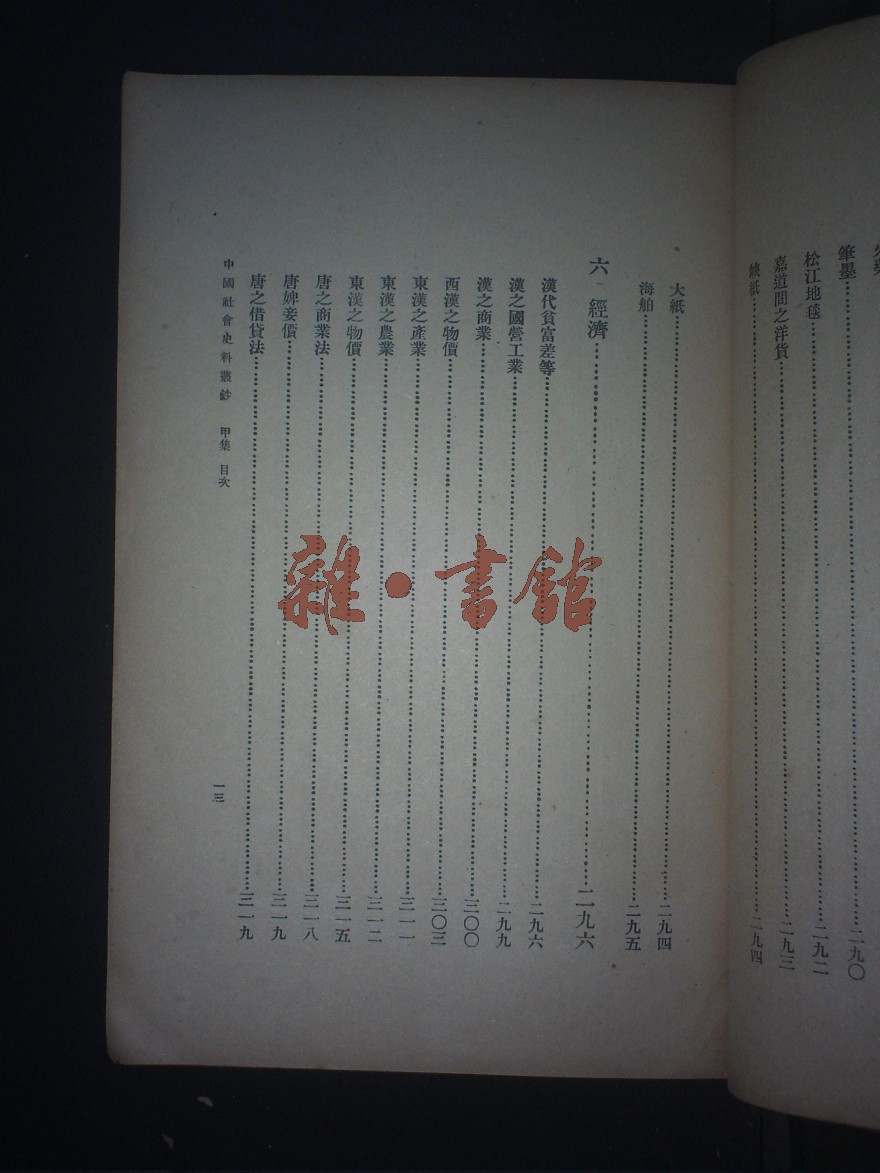 筆墨……二九〇
松江地毯……二九二
嘉道間之洋貨……二九三
紙……二九四
大紙……二九四
海舶……二九五
六 經濟……二九六
漢代貧富差等……二九六
漢之國營工業……二九九
漢之商業……三〇〇
西漢之物價……三〇三
東漢之產業……三一一
東漢之農業……三一二
東漢之物價……三一五
唐之商業法……三一八
唐婢妾價……三一九
唐之借貸法……三一九
中國社會史料叢鈔 甲集 目次
一三
雜·書館